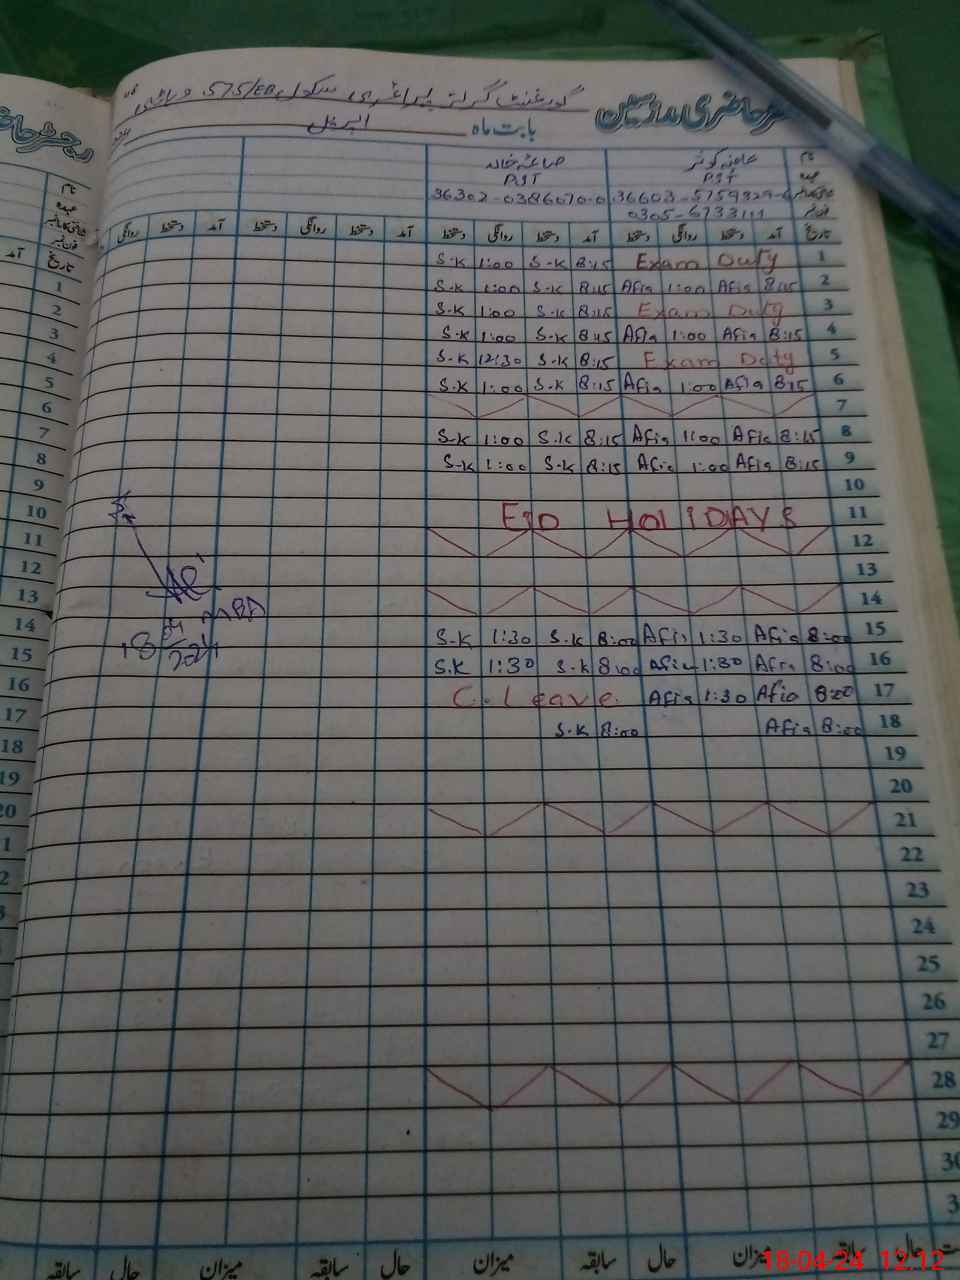 گورنمنٹ گرلز پرائمری سکول 575/EB وہاڑی
رجسٹر حاضری ملازمین
بابت ماہ اپریل
نام عافیہ کوثر صاعقہ خالد
عہدہ PST PST
36603-5759829-6 36302-0386070-0
0305-6733111
تاریخ آمد دستخط روانگی دستخط آمد دستخط روانگی دستخط آمد دستخط روانگی دستخط آمد دستخط روانگی
S.K 1:00 S.K 8:15 Exam Duty 1
S.K 1:00 S.K 8:15 Afia 1:00 Afia 8:15 2
S.K 1:00 S.K 8:15 Exam Duty 3
S.K 1:00 S.K 8:15 Afia 1:00 Afia 8:15 4
S.K 12:30 S.K 8:15 Exam Duty 5
S.K 1:00 S.K 8:15 Afia 1:00 Afia 8:15 6
7
S.K 1:00 S.K 8:15 Afia 1:00 Afia 8:15 8
S.K 1:00 S.K 8:15 Afia 1:00 Afia 8:15 9
10
EID HOLIDAYS 11
12
13
14
S.K 1:30 S.K 8:00 Afia 1:30 Afia 8:00 15
S.K 1:30 S.K 8:00 Afia 1:30 Afia 8:00 16
C.Leave Afia 1:30 Afia 8:00 17
S.K 8:00 Afia 8:00 18
19
20
21
22
23
24
25
26
27
28
29
30
3
حال سابقہ میزان حال سابقہ میزان حال سابقہ میزان حال سابقہ
18-04-24 12:12
رجسٹر
نام
عہدہ
تاریخ
آمد
1
2
3
4
5
6
7
8
9
10
11
12
13
14
15
16
17
18
19
20